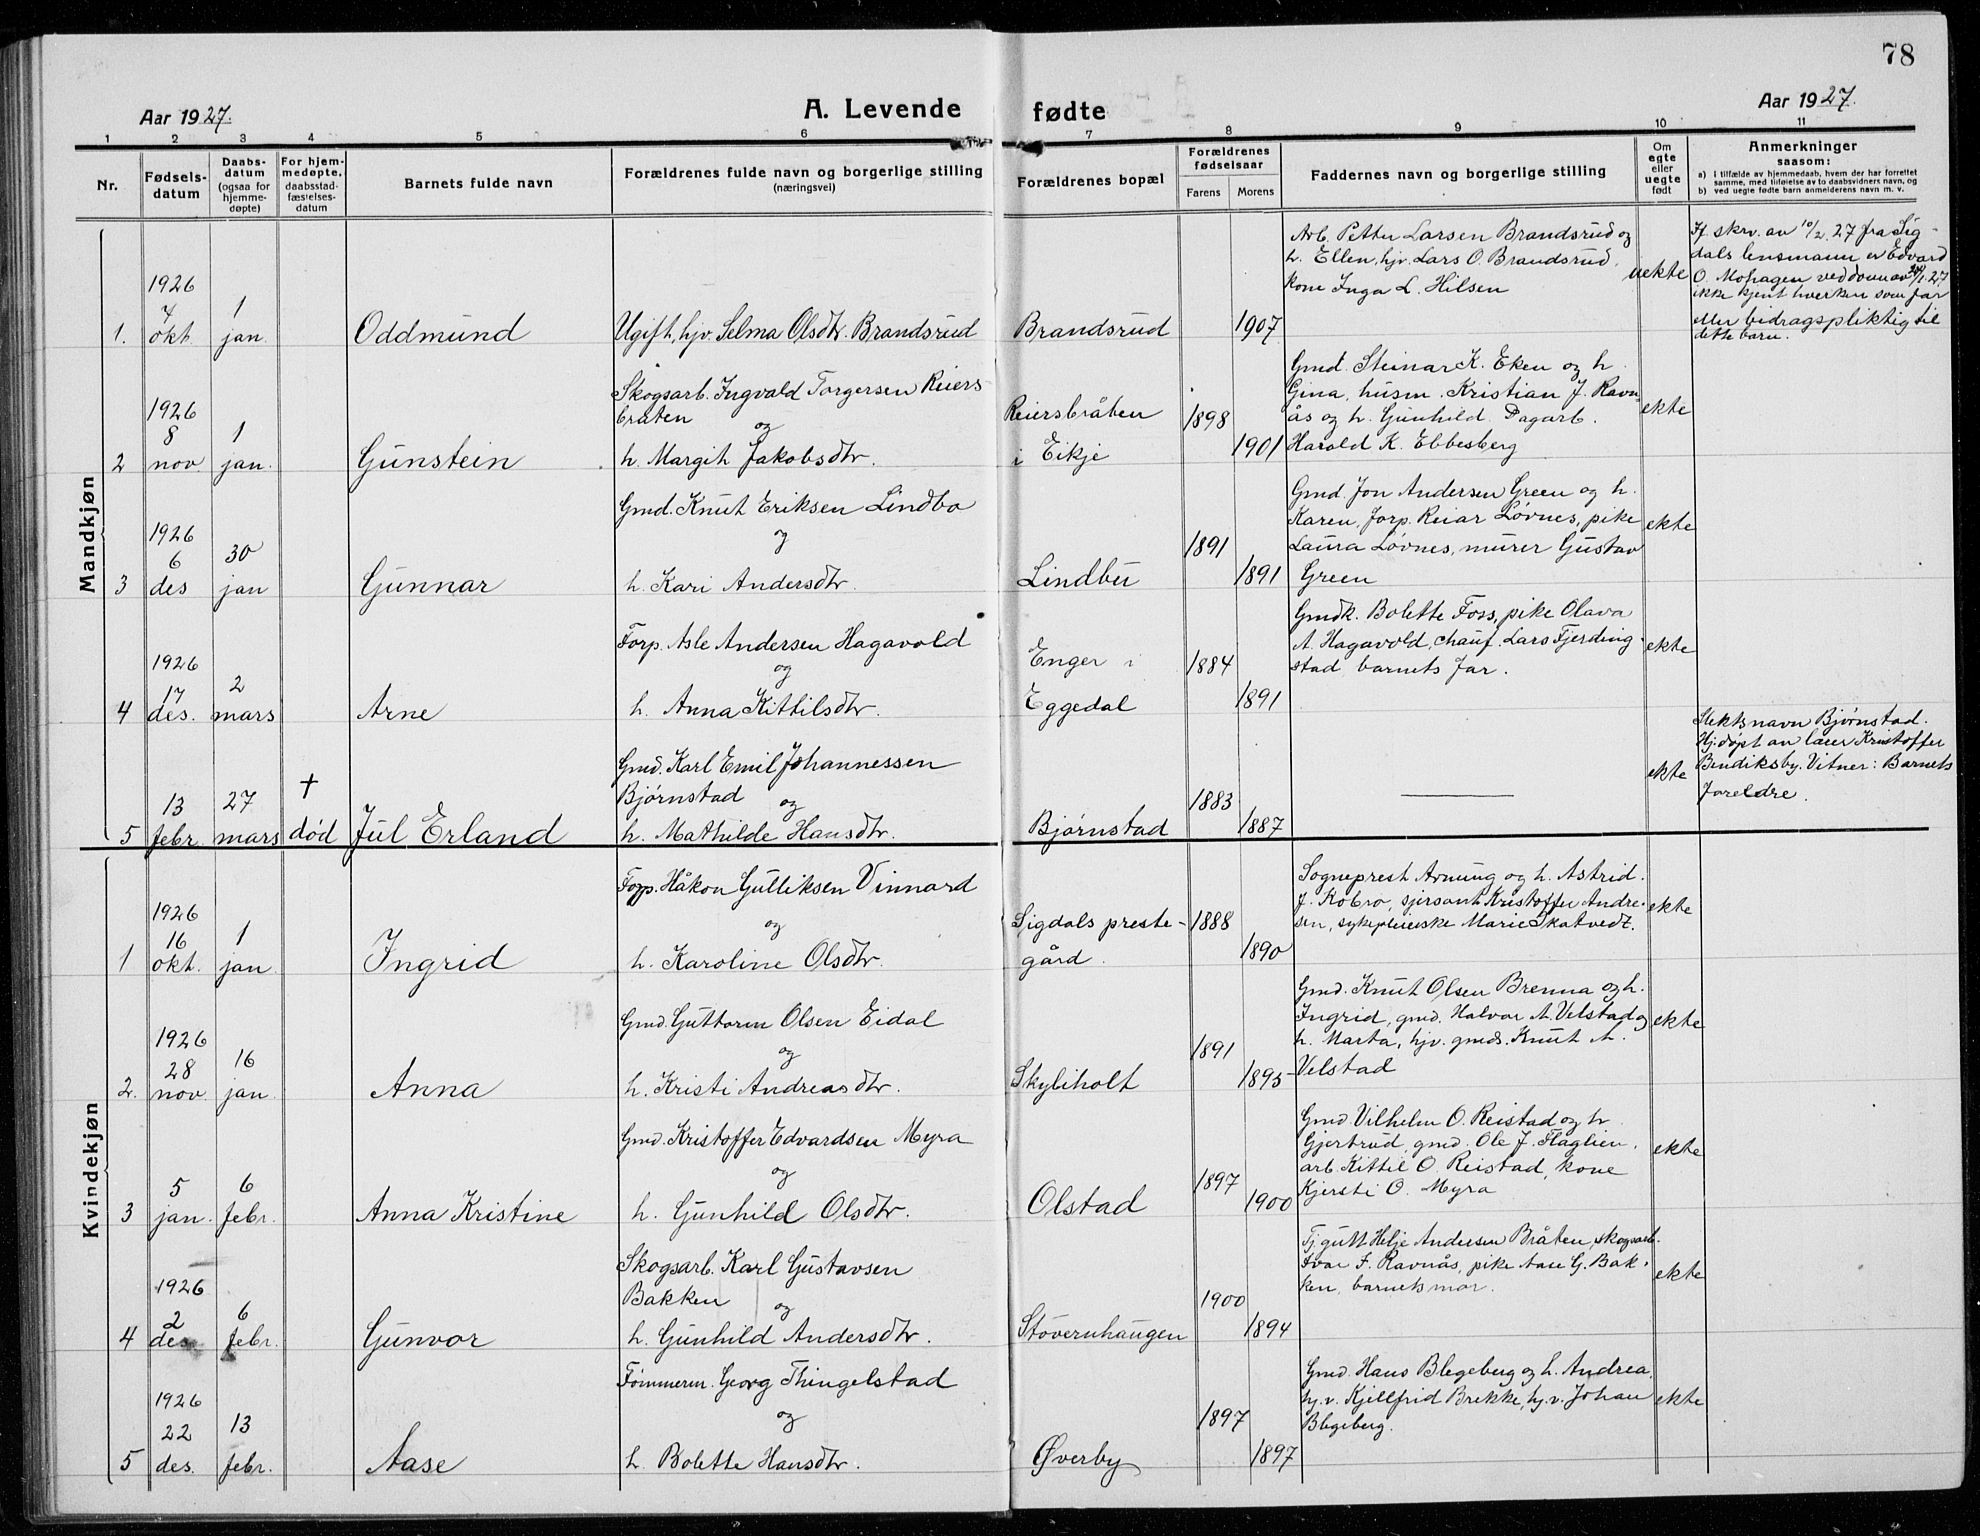 78
Aar 1927.
A. Levende fødte
Aar 1927.
1 2 3 4 5 6 7 8 9 10 11
Nr.
Fødsels-
datum
Daabs-
datum
(ogsaa for
hjemme-
døpte)
For hjem-
medøpte,
daabsstad-
fæstelses-
datum
Barnets fulde navn
Forældrenes fulde navn og borgerlige stilling
(næringsvei)
Forældrenes bopæl
Forældrenes
fødselsaar
Farens Morens
Faddernes navn og borgerlige stilling
Om
egte
eller
uegte
født
Anmerkninger
saasom:
a) i tilfælde av hjemmedaab, hvem der har forrettet
samme, med tilføielse av to daabsvidners navn, og
b) ved uegte fødte barn anmelderens navn m. v.
Mandkjøn
1.
1926
7
okt.
1
jan
Oddmund
Ugift, hjv. Selma Olsdtr. Brandsrud
Brandsrud
1907
Arb. Petter Larsen Brandsrud og
h. Ellen, hjv. Lars O. Brandsrud,
kone Inga L. Hilsen
uekte
If. skrv. av 10/2. 27 fra Sig-
dals lensmann er Edvard
O. Mohagen ved dom av 1. 27
ikke kjent hverken som far
eller bidragspliktig til
dette barn.
2
1926
8
nov.
1
jan.
Gunstein
Skogsarb. Ingvald Torgersen Reiers
bråten
og
h. Margit Jakobsdtr.
Reiersbråten
i Eikje
1898
1901
Gmd. Steinar K. Eken og h.
Gina, husm. Kristian J. Ravn
ås og h. Gunhild. Dagarb.
Harald K. Ebbesberg
ekte
3
1926
6
des
30
jan
Gunnar
Gmd. Knut Eriksen Lindbo
og
h. Kari Andersdtr.
Lindbu
1891
1891
Gmd. Jon Andersen Green og h.
Karen, forp. Reiar Løvnes, pike
Laura Løvnes, murer Gustav
Green
ekte
4
1926
17
des.
2
mars
Arne
Forp. Asle Andersen Hagavold
og
h. Anna Kittilsdtr.
Enger i
Eggedal
1884
1891
Gmdk. Bolette Foss, pike Olava
A. Hagavold, chauf. Lars Fjerding-
stad, barnets far.
ekte
5
13
febr.
27
mars
†
død
Jul Erland
Gmd. Karl Emil Johannessen
Bjørnstad
og
h. Mathilde Hansdtr.
Bjørnstad
1883
1887
ekte
Slektsnavn Bjørnstad.
Hj.døpt av lærer Kristoffer
Bendiksby. Vitner: Barnets
foreldre.
Kvindekjøn
1
1926
16
okt.
1
jan
Ingrid
Forp. Håkon Gulliksen Vinnard
og
h. Karoline Olsdtr.
Sigdals preste-
gård.
1888
1890
Sogneprest Arnung og h. Astrid.
J. Kobro, sjersant Kristoffer Andre-
sen, sykepleierske Marie Skatvedt.
ekte
2.
1926
28
nov.
16
jan
Anna
Gmd. Guttorm Olsen Eidal
og
h. Kristi Andreasdtr.
Skyliholt
1891
1895
Gmd. Knut Olsen Brenna og h.
Ingrid, gmd. Halvor A. Velstad og
h. Marta, hjv. gmds. Knut A.
Velstad
ekte
3
5
jan.
6
febr.
Anna Kristine
Gmd. Kristoffer Edvardsen Myra
og
h. Gunhild Olsdtr.
Olstad
1897
1900
Gmd Vilhelm O. Reistad og h
Gjertrud, gmd. Ole J. Flaglien,
arb. Kittil O. Reistad, kone
Kjersti O. Myra
ekte
4
1926
2
des
6
febr.
Gunvor
Skogsarb. Karl Gustavsen
Bakken
og
h. Gunhild Andersdtr.
Støvernhaugen
1900
1894
Tj. gutt Helje Andersen Bråten, skogsarb.
Ivar F. Ravnås, pike Aase G. Bak-
ken, barnets mor.
ekte
5
1926
22
des.
13
febr.
Aase
Tømmerm. Georg Thingelstad
og
h. Bolette Hansdtr.
Øverby
1897
1897
Gmd. Hans Blegeberg og h. Andrea,
hj.v. Kjellfrid Brekke, hj.v. Johan
Blegeberg.
ekte